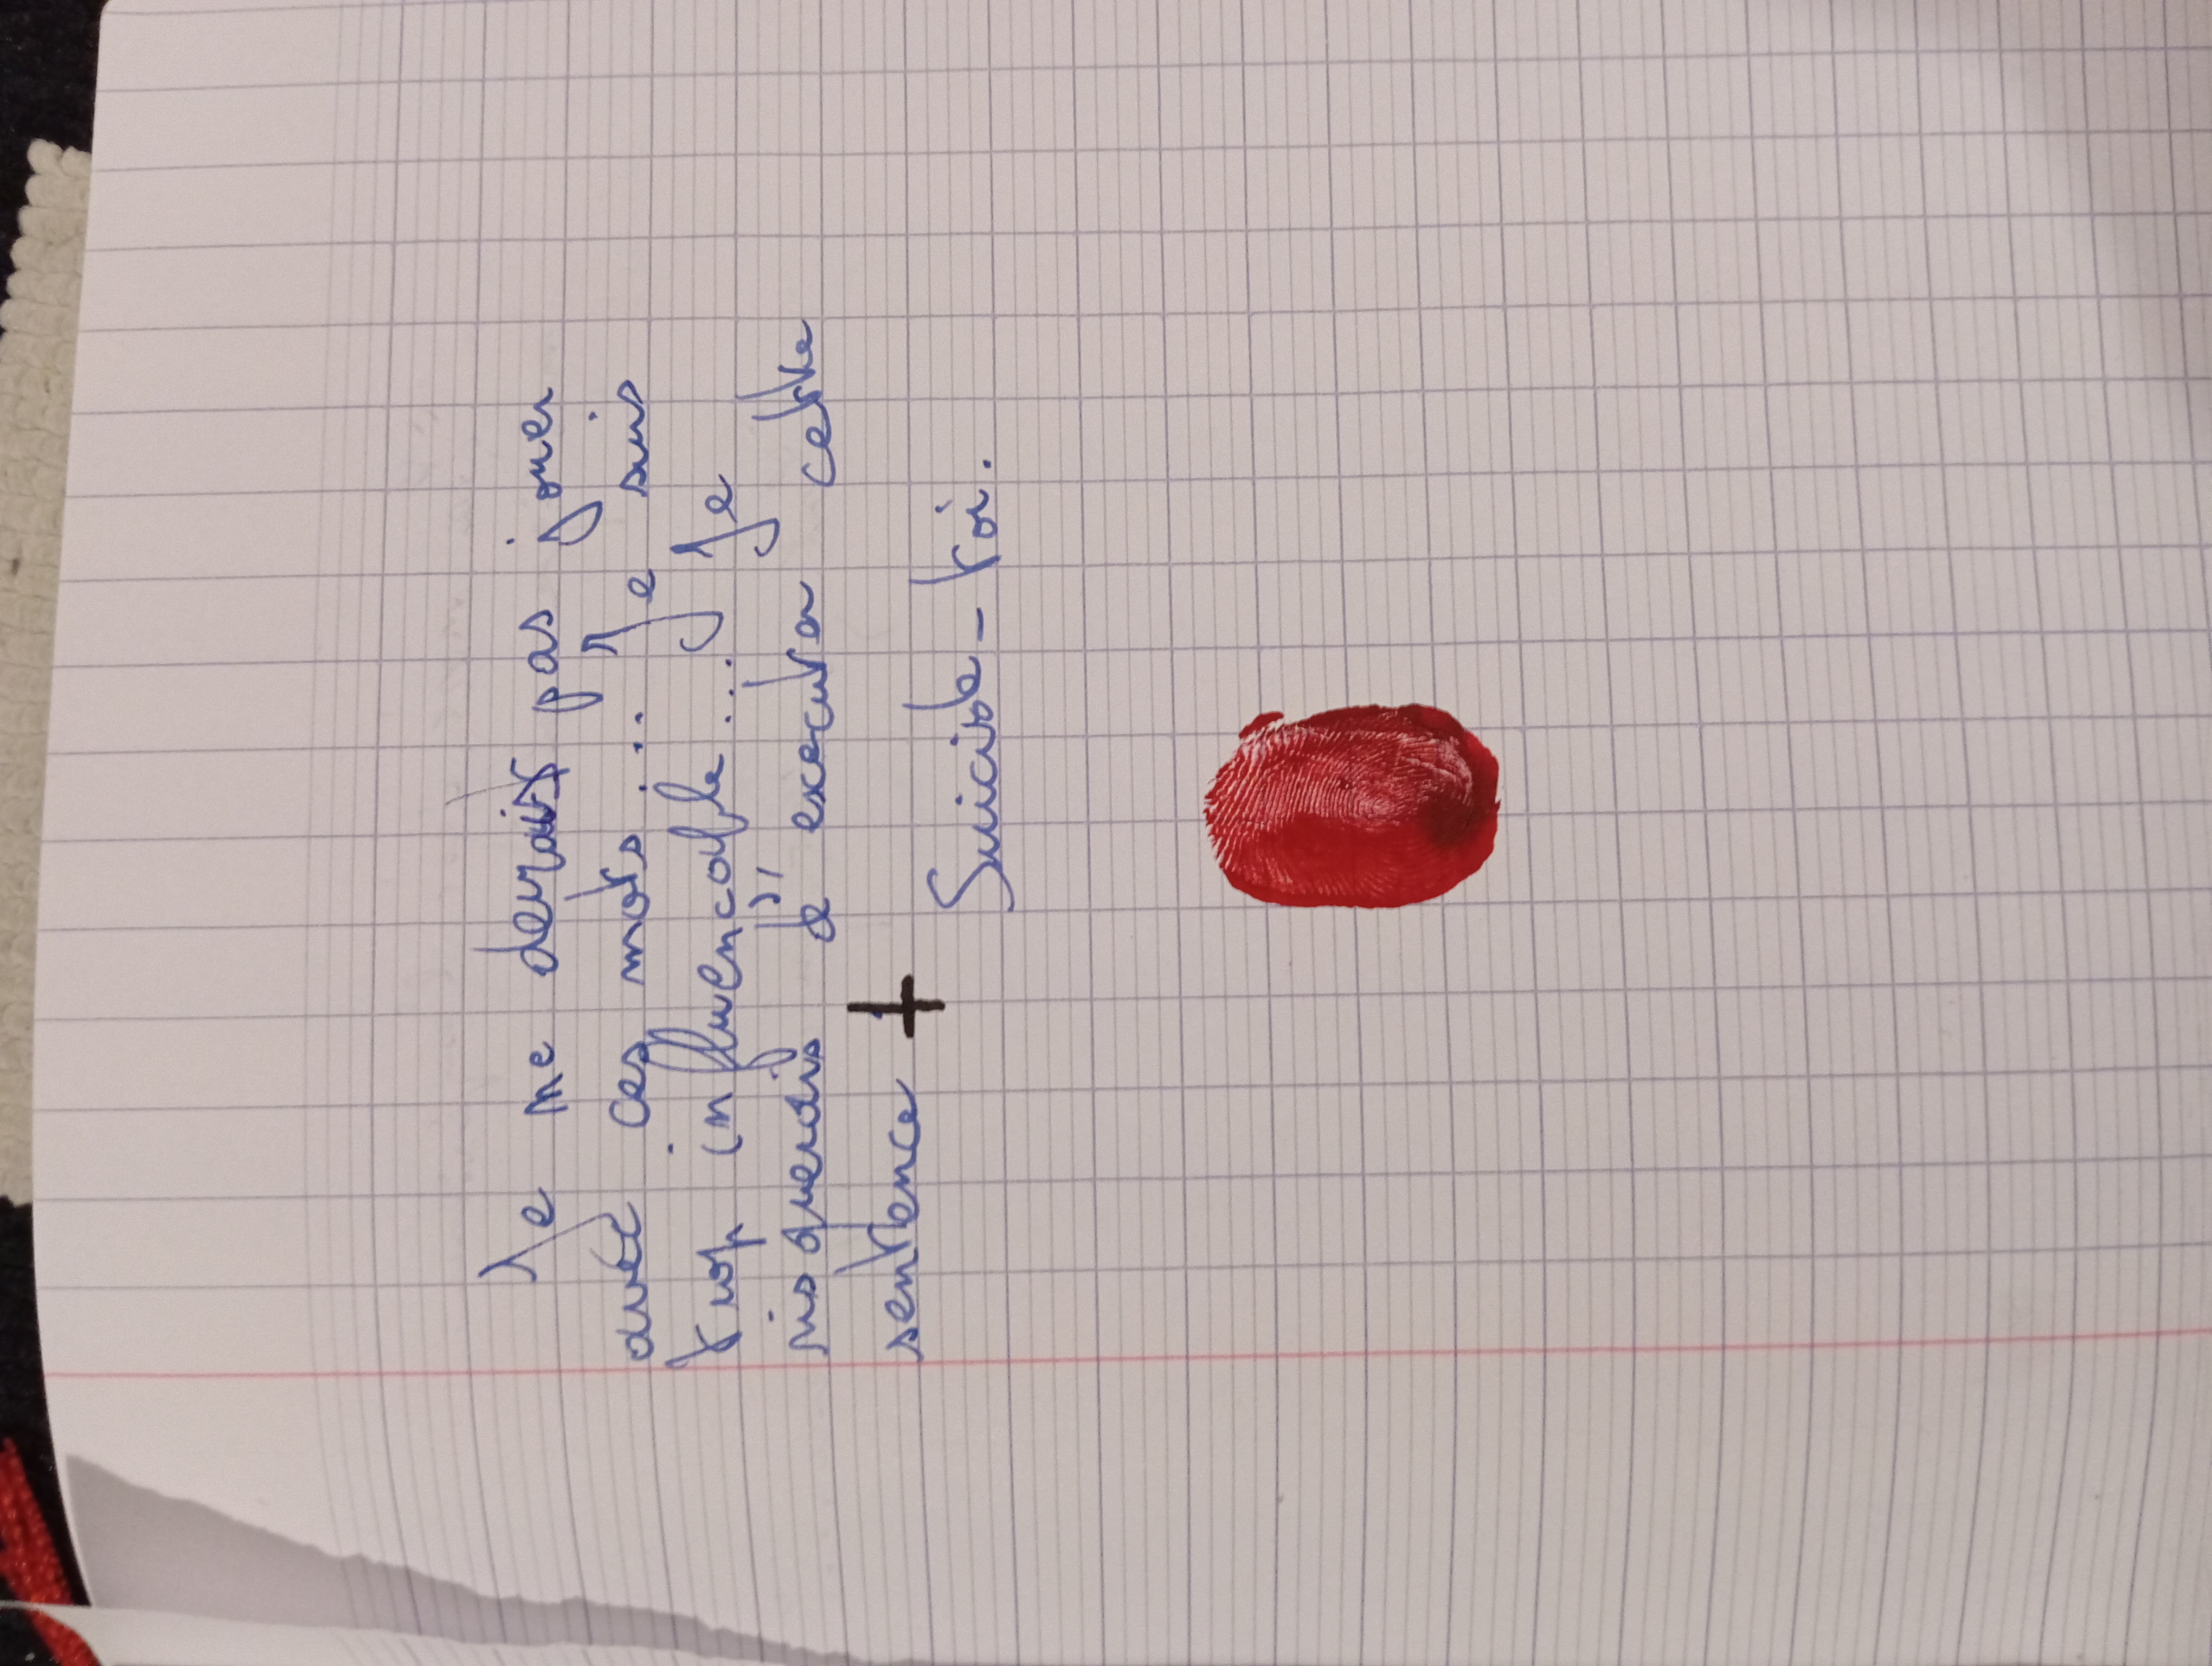 Je ne devrais pas jouer
avec ces mots... Je suis
trop influençable... Je
risquerais d'exécuter cette
sentence
Suicide-toi.